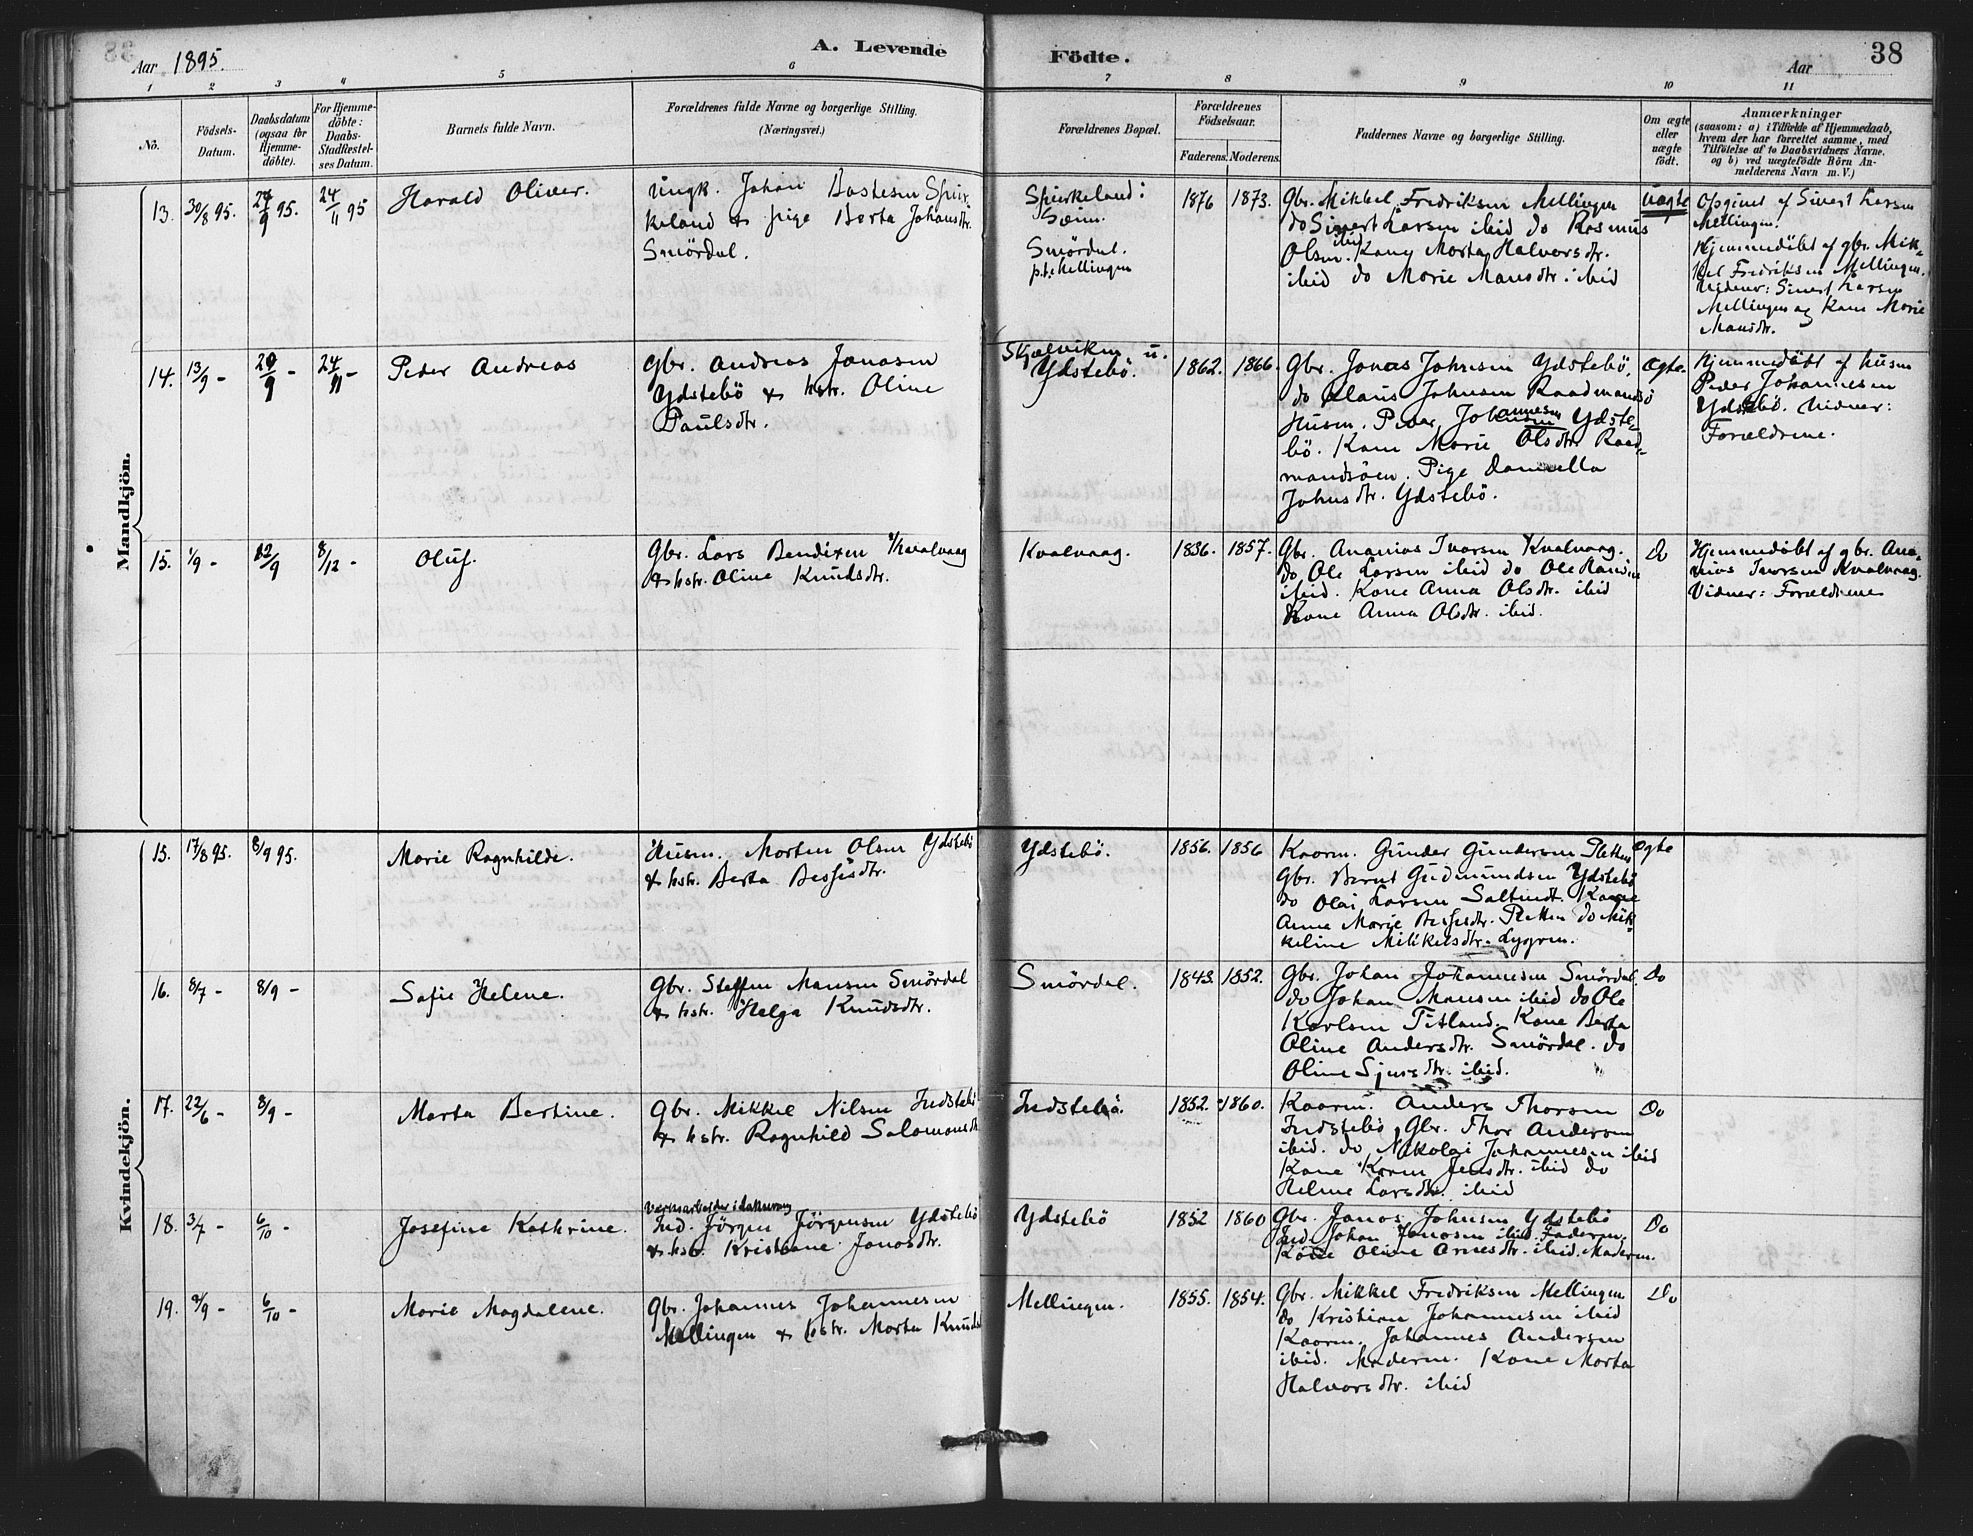 Aar 1895.
A. Levende
Födte.
Aar
38
1 2 3 4 5 6 7 8 9 10 11
No.
Födsels-
Datum.
Daabsdatum
(ogsaa for
Hjemme-
döbte).
For Hjemme-
döbte:
Daabs-
Stadfæstel-
ses Datum.
Barnets fulde Navn.
Forældrenes fulde Navne og borgerlige Stilling.
(Næringsvei.)
Forældrenes Bopæl.
Forældrenes
Födselsaar.
Faderens. Moderens.
Faddernes Navne og borgerlige Stilling.
Om ægte
eller
uægte
födt.
Anmærkninger
(saasom: a) i Tilfælde af Hjemmedaab,
hvem der har forrettet samme, med
Tilföielse af to Daabsvidners Navne.
og b) ved uægtefödte Börn An-
melderens Navn m. V.)
Mandkjön.
13. 30/8 95. 9 95. 24/11 95
Harald Oliver.
Ungk. Johan
keland & pige Berta Johansdtr.
Smördal.
Spirkeland:
Smördal.
p.t. Mellingen
1876 1873.
Gbr. Mikkel Fredriksen Mellingen
do Sivert Larsen ibid do Rasmus
Olsen ibid. Kone Marta Halvorsdtr.
ibid do Marie Mansdtr. ibid
uægte
Opgivet af Sivert Larsen
Mellingen.
Hjemmedöbt af gbr. Mik-
kel Fredriksen Mellingen.
Vidner: Sivert Larsen
Mellingen og Kone Marie
Mansdtr.
14. 13/9 - 9 - 24/11 -
Peder Andreas
Gbr. Andreas Jonasen
Ydstebö & hstr. Oline
Paulsdtr.
Skjelviken u.
Ydstebö.
1862. 1866.
Gbr. Jonas Johnsen Ydstebö,
do Klaus Johnsen Raadmandsö
Husm. Peder Johannesen Ydste-
bö. Kone Marie Olsdtr. Raad-
mandsöen. Pige Daniella
Johnsdtr. Ydstebö.
ægte.
Hjemmedöbt af husm
Peder Johannesen
Ydstebö. Vidner:
Forældrene.
15. 1/9 - 22/9 8/12 -
Oluf.
Gbr. Lars Bendixen Kvalvaag
& hstr. Oline Knudsdtr.
Kvalvaag.
1836. 1857.
Gbr. Ananias Ivarsen Kvalvaag.
do Ole Larsen ibid do Ole
ibid. Kone Anna Olsdtr. ibid
Kone Anna Olsdtr. ibid.
Do
Hjemmedöbt af gbr. Ana-
nias Ivarsen Kvalvaag.
Vidner: Forældrene
Kvindekjön.
15. 17/8 95. 8/9 95.
Marie Ragnhilde.
Husm. Morten Olsen Ydstebö
& hstr. Berta Bessesdtr.
Ydstebö.
1856. 1856
Kaarm. Gunder Gundersen Pletten
Gbr. Bernt Gudmundsen Ydstebö
do Olai Larsen Kone
Anna Marie Bessesdtr. Pletten do Mik-
keline Mikkelsdtr. Lygren.
ægte
16. 8/7 - 8/9 -
Sofie Helene.
Gbr. Steffen Mansen Smördal
& hstr. Helga Knudsdtr.
Smördal.
1843. 1852.
Gbr. Johan Johannesen Smördal.
do Johan Mansen ibid do Ole
Karlsen Titland. Kone Berta
Oline Andersdtr. Smördal. do
Oline Sjursdtr. ibid.
Do
17. 22/6 - 8/9 -
Marta Bertine.
Gbr. Mikkel Nilsen Indstebö
& hstr. Ragnhild Salomonsdtr
Indstebö.
1852. 1860.
Kaarm. Anders Thorsen
Indstebö. Gbr. Thor Andersen
ibid. do Nikolai Johannesen ibid
Kone Karen Jensdtr. ibid do
Helene Larsdtr. ibid
Do
18. 3/7 - 6/10 -
Josefine Kathrine.
Ind. Jörgen Jörgensen Ydstebö
& hstr. Kristiane Jonasdtr.
Ydstebö
1852 1860
Gbr. Jonas Johnsen Ydstebö
Ind. Johan Jonasen ibid. Faderen.
Kone Oline Arnesdtr. ibid. Moderen.
Do
19. 9 - 6/10 -
Marie Magdalene.
Gbr. Johannes Johannesen
Mellingen & hstr. Marta Knuds
Mellingen.
1855. 1854.
Gbr. Mikkel Fredriksen Mellingen
do Kristian Johannesen ibid
Kaarm. Johannes Andersen
ibid. Moderen. Kone Marta
Halvorsdtr. ibid
Do